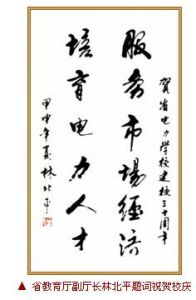 贺省电力学校建校三十周年
服务市場經济
培育电力人才
甲申年夏林北平
▲ 省教育厅副厅长林北平题词祝贺校庆